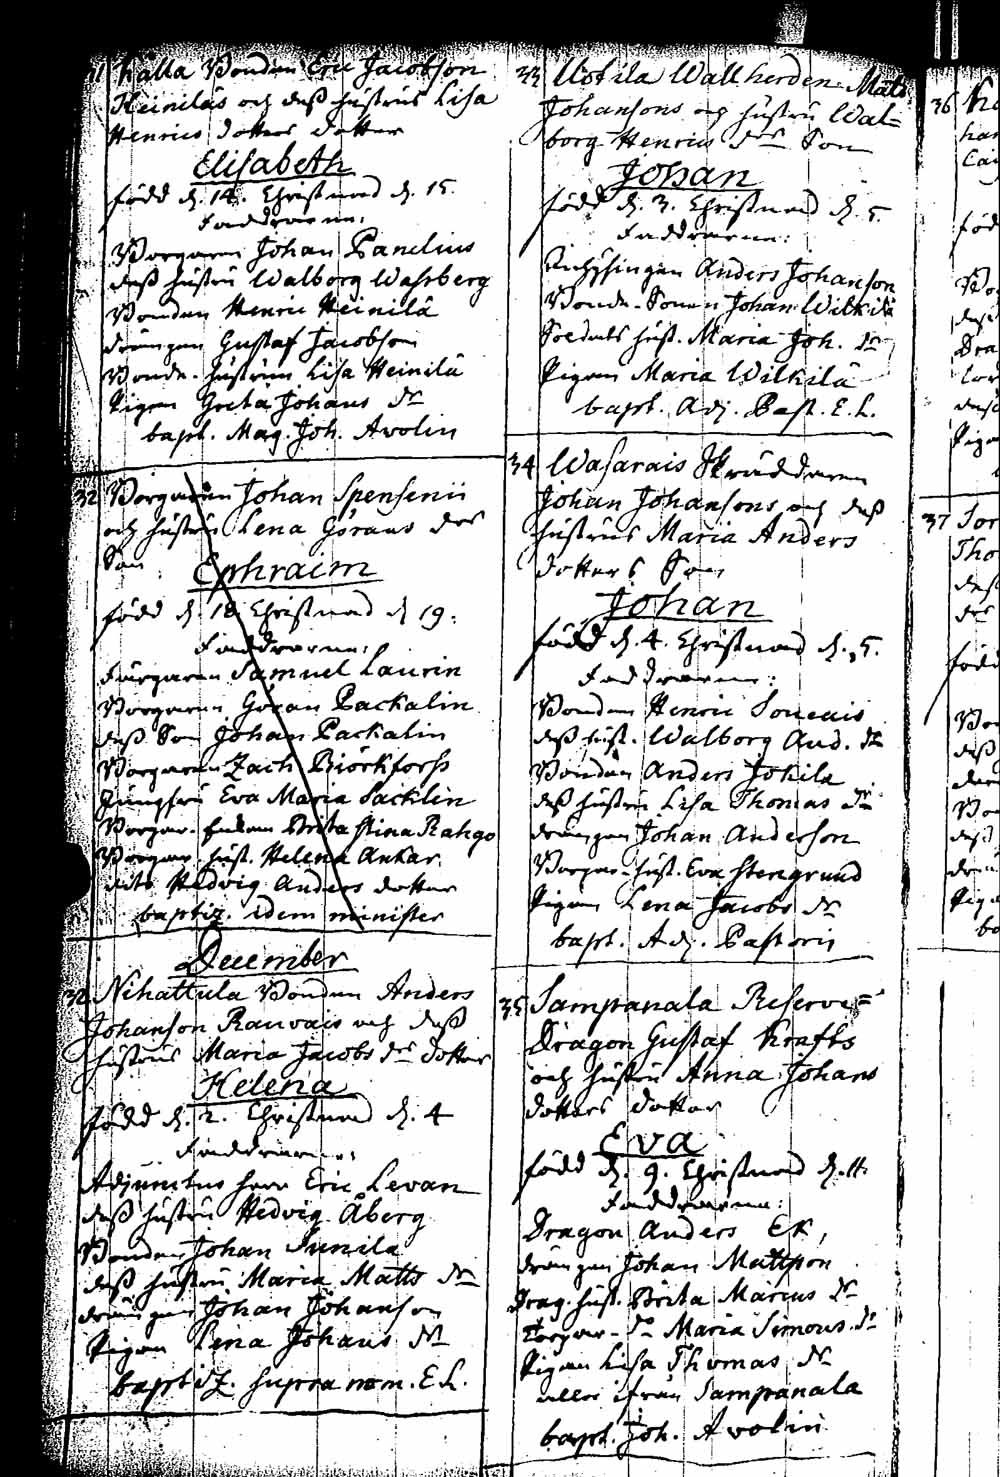 31 Kalla Bonden Eric Jacobson
Heiniläs och dess hustrus Lisa
Henrics dotters dotter
Elisabeth
född d. 14. Christnad d. 15.
Faddrarne:
Borgaren Johan Panelius
dess hustru Walborg Wahrberg
Bonden Henric Heinilä
drängen Gustaf Jacobson
Bonde-hustrun Lisa Heinilä
Pigan Greta Johans dr
bapt. Mag. Joh. Avolin
32 Borgaren Johan Spensenii
och hustru Lena Görans drs
Son
Ephraim
född d. 18 Christnad d 19.
Faddrarne:
Färgaren Samuel Laurin
Borgaren Göran Packalin
dess Son Johan Packalin
Borgaren Zach Biörkforss
Jungfru Eva Maria Sacklin
Borgar-enkan Brita Stina Rahgo
Borgar hust. Helena Ankar
dito Hedvig Anders dotter
baptiz. idem minister
December
32 Nihattula Bonden Anders
Johanson Rauvais och dess
hustrus Maria Jacobs drs dotter
Helena
född d. 2. Christnad d. 4
Faddrarne:
Adjunctus herr Eric Levan
dess hustru Hedvig Åberg
Bonden Johan Sunila
dess hustru Maria Matts dr
drängen Johan Johanson
Pigan Lena Johans dr
baptiz. supra nom. E.L.
33 Uotila Wallherden Mats
Johansons och hustru Wal=
borg Henrics drs Son
Johan
född d. 3. Christnad d. 5.
Faddrarne:
Anders Johanson
Bonde-Sonen Johan Wilkilä
Soldats hust. Maria Joh. dr
Pigan Maria Wilkilä
bapt. Adj. Past. E.L.
34 Wasarais Skräddaren
Johan Johansons och dess
hustrus Maria Anders
dotters Son
Johan
född d. 4. Christnad d. 5.
Faddrarne:
Bonden Henric Soucais
dess hust. Walborg And. dr
Bonden Anders Johila
dess hustru Lisa Thomas dr
drängen Johan Anderson
Borgar-hust. Eva Stengrund
Pigan Lena Jacobs dr
bapt. Adj. Pastoris
35 Sampanala Reserve=
Dragon Gustaf Krafts
och hustru Anna Johans
dotters dotter
Eva
född d. 9. Christnad d. 11.
Faddrarne:
Dragon Anders Ek,
drängen Johan Mattson
Drag. hust. Brita Marcus dr
Torpar-dr Maria Simons dr
Pigan Lisa Thomas dr
alla ifrån Sampanala
bapt. Joh. Avolin
36
37
Tho
född